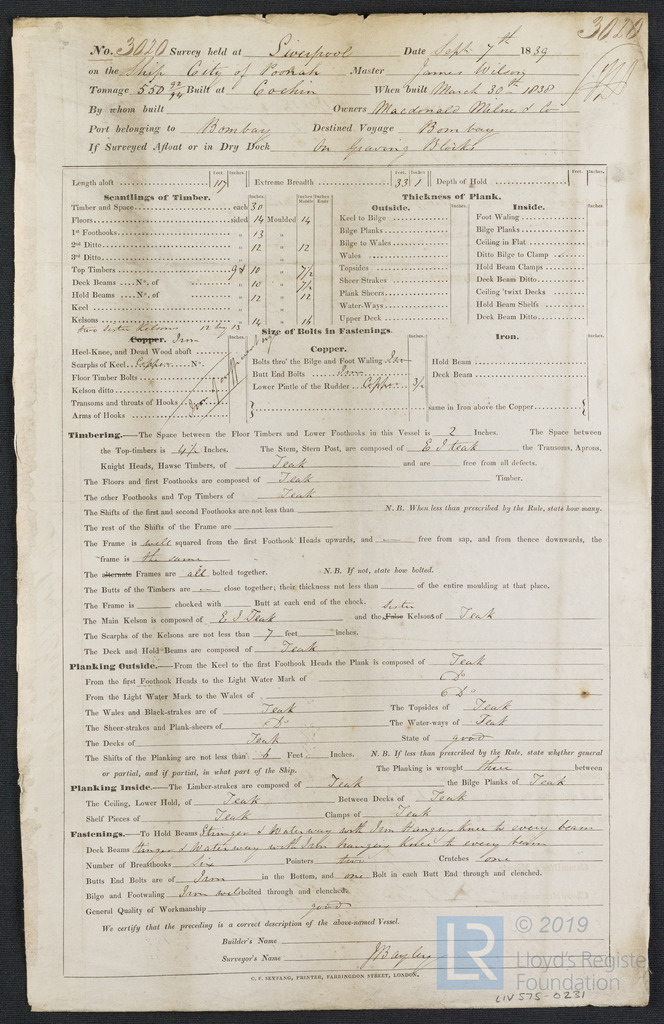 3020
No. 3020 Survey held at Liverpool Date Sept. 7th 1839
on the Ship City of Poonah Master James Wilson
Tonnage 550 92/94 Built at Cochin When built March 30th 1838
By whom built Owners Macdonald Malne & Co
Port belonging to Bombay Destined Voyage Bombay
If Surveyed Afloat or in Dry Dock On Graving Blocks
Feet. Inches. Feet. Inches. Feet. Inches.
Length aloft 117 Extreme Breadth 33 1 Depth of Hold
Scantlings of Timber.
Timber and Space each 30
Floors sided 14 Moulded 14
1st Foothooks „ 13 „
2nd Ditto „ 12 „ 12
3rd Ditto „ „
Top Timbers 9 & 10 „ 7½
Deck Beams No. of „ 10 „ 7½
Hold Beams No. of „ 12 „ 12
Keel „ „
Kelsons „ 14 „ 14
two Sister Kelsons 12 by 13
Thickness of Plank.
Outside.
Keel to Bilge
Bilge Planks
Bilge to Wales
Wales
Topsides
Sheer Strakes
Plank Sheers
Water-Ways
Upper Deck
Inside.
Foot Waling
Bilge Planks
Ceiling in Flat
Ditto Bilge to Clamp
Hold Beam Clamps
Deck Beam Ditto
Ceiling 'twixt Decks
Hold Beam Shelfs
Deck Beam Ditto
Size of Bolts in Fastenings.
Copper. Iron
Heel-Knee, and Dead Wood abaft
Scarphs of Keel Copper No.
Floor Timber Bolts
Kelson ditto
Transoms and throats of Hooks
Arms of Hooks
Copper.
Bolts thro' the Bilge and Foot Waling Iron
Butt End Bolts Iron
Lower Pintle of the Rudder Copper 3½
Iron.
Hold Beam
Deck Beam
same in Iron above the Copper
Timbering.—The Space between the Floor Timbers and Lower Foothooks in this Vessel is 2 Inches. The Space between
the Top-timbers is 4½ Inches. The Stem, Stern Post, are composed of E I teak the Transoms, Aprons,
Knight Heads, Hawse Timbers, of Teak and are free from all defects.
The Floors and first Foothooks are composed of Teak Timber.
The other Foothooks and Top Timbers of Teak
The Shifts of the first and second Foothooks are not less than N.B. When less than prescribed by the Rule, state how many.
The rest of the Shifts of the Frame are
The Frame is well squared from the first Foothook Heads upwards, and free from sap, and from thence downwards, the
frame is the same
The alternate Frames are all bolted together. N.B. If not, state how bolted.
The Butts of the Timbers are close together; their thickness not less than of the entire moulding at that place.
The Frame is chocked with Butt at each end of the chock.
The Main Kelson is composed of E I Teak and the False Sister Kelsons of Teak
The Scarphs of the Kelsons are not less than 7 feet inches.
The Deck and Hold Beams are composed of Teak
Planking Outside.—From the Keel to the first Foothook Heads the Plank is composed of Teak
From the first Foothook Heads to the Light Water Mark of Do
From the Light Water Mark to the Wales of Do
The Wales and Black-strakes are of Teak The Topsides of Teak
The Sheer-strakes and Plank-sheers of Do The Water-ways of Teak
The Decks of Teak State of good
The Shifts of the Planking are not less than 6 Feet Inches. N.B. If less than prescribed by the Rule, state whether general
or partial, and if partial, in what part of the Ship. The Planking is wrought three between
Planking Inside.—The Limber-strakes are composed of Teak the Bilge Planks of Teak
The Ceiling, Lower Hold, of Teak Between Decks of Teak
Shelf Pieces of Teak Clamps of Teak
Fastenings.—To Hold Beams Stringer & Waterway with Iron Hanging knee to every beam
Deck Beams Stringer & Waterway with Iron hanging knees to every beam
Number of Breasthooks Six Pointers two Crutches one
Butts End Bolts are of Iron in the Bottom, and one Bolt in each Butt End through and clenched.
Bilge and Footwaling Iron bolted through and clenched.
General Quality of Workmanship good
We certify that the preceding is a correct description of the above-named Vessel.
Builder's Name
Surveyor's Name J Bayley
C. F. SEYFANG, PRINTER, FARRINGDON STREET, LONDON.
LR © 2019
Lloyd's Register
Foundation
LIV575-0231